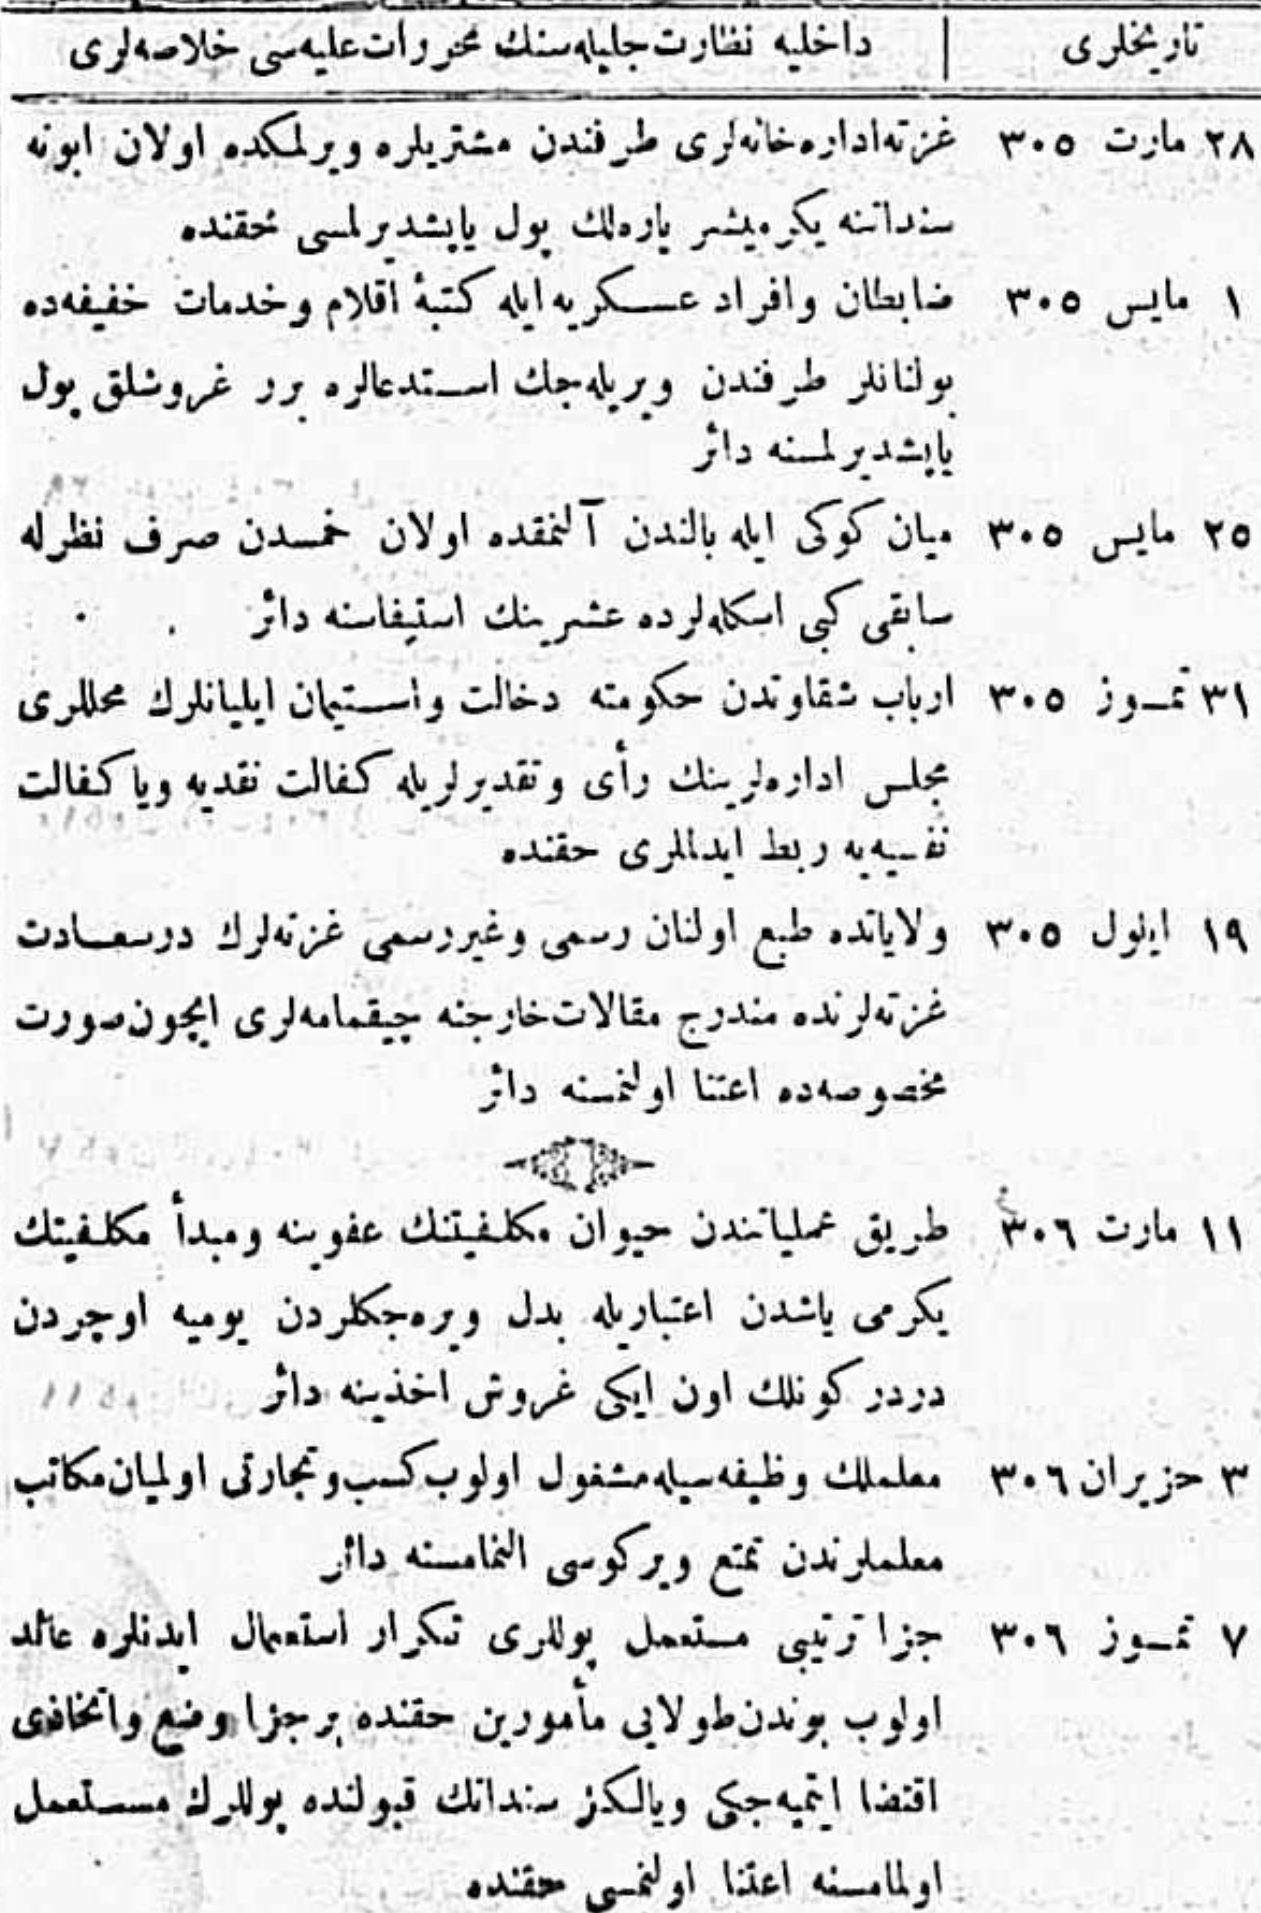 تاریخلری | داخلیه نظارت جلیله‌سنك محررات علیه‌سی خلاصه‌لری
٢٨ مارت ٣٠٥ غزته‌اداره‌خانه‌لری طرفندن مشتریلره ویرلمكده اولان ابونه
سنداتنه یكرمیشر پاره‌لك پول یاپشدیرلمسی حقنده
١ مایس ٣٠٥ ضابطان وافراد عسكریه ایله كتبۀ اقلام وخدمات خفیفه‌ده
بولنانلر طرفندن ویریله‌جك استدعالره برر غروشلق پول
یاپشدیرلمسنه دائر
٢٥ مایس ٣٠٥ میان كوكی ایله بالندن آلنمقده اولان خمسدن صرف نظرله
سابقی كبی اسكله‌لرده عشرینك استیفاسنه دائر
٣١ تمـوز ٣٠٥ ارباب شقاوتدن حكومته دخالت واستیمان ایلیانلرك محللری
مجلس اداره‌لرینك رأی وتقدیرلریله كفالت نقدیه ویا كفالت
نفسیه‌یه ربط ایدللری حقنده
١٩ ایلول ٣٠٥ ولایاتده طبع اولنان رسمی وغیررسمی غزته‌لرك درسعادت
غزته‌لرنده مندرج مقالات خارجنه چیقمامه‌لری ایچون صورت
مخصوصه‌ده اعتنا اولنمسنه دائر
١١ مارت ٣٠٦ طریق عملیاتندن حیوان مكلفیتنك عفوینه ومبدأ مكلفیتك
یكرمی یاشدن اعتباریله بدل ویره‌جكلردن یومیه اوچردن
دردر كونلك اون ایكی غروش اخذینه دائر
٣ حزیران ٣٠٦ معلملك وظیفه‌سیله مشغول اولوب كسب وتجارتی اولمیان مكاتب
معلملرندن تمتع ویركوسی النمامسنه دائر
٧ تمـوز ٣٠٦ جزا ترتیبی مستعمل پوللری تكرار استعمال ایدنلره عائد
اولوب بوندن طولایی مأمورین حقنده برجزا وضع واتخاذی
اقتضا ایتمیه‌جكی ویالكز سنداتك قبولنده پوللرك مستعمل
اولمامسنه اعتنا اولنمسی حقنده